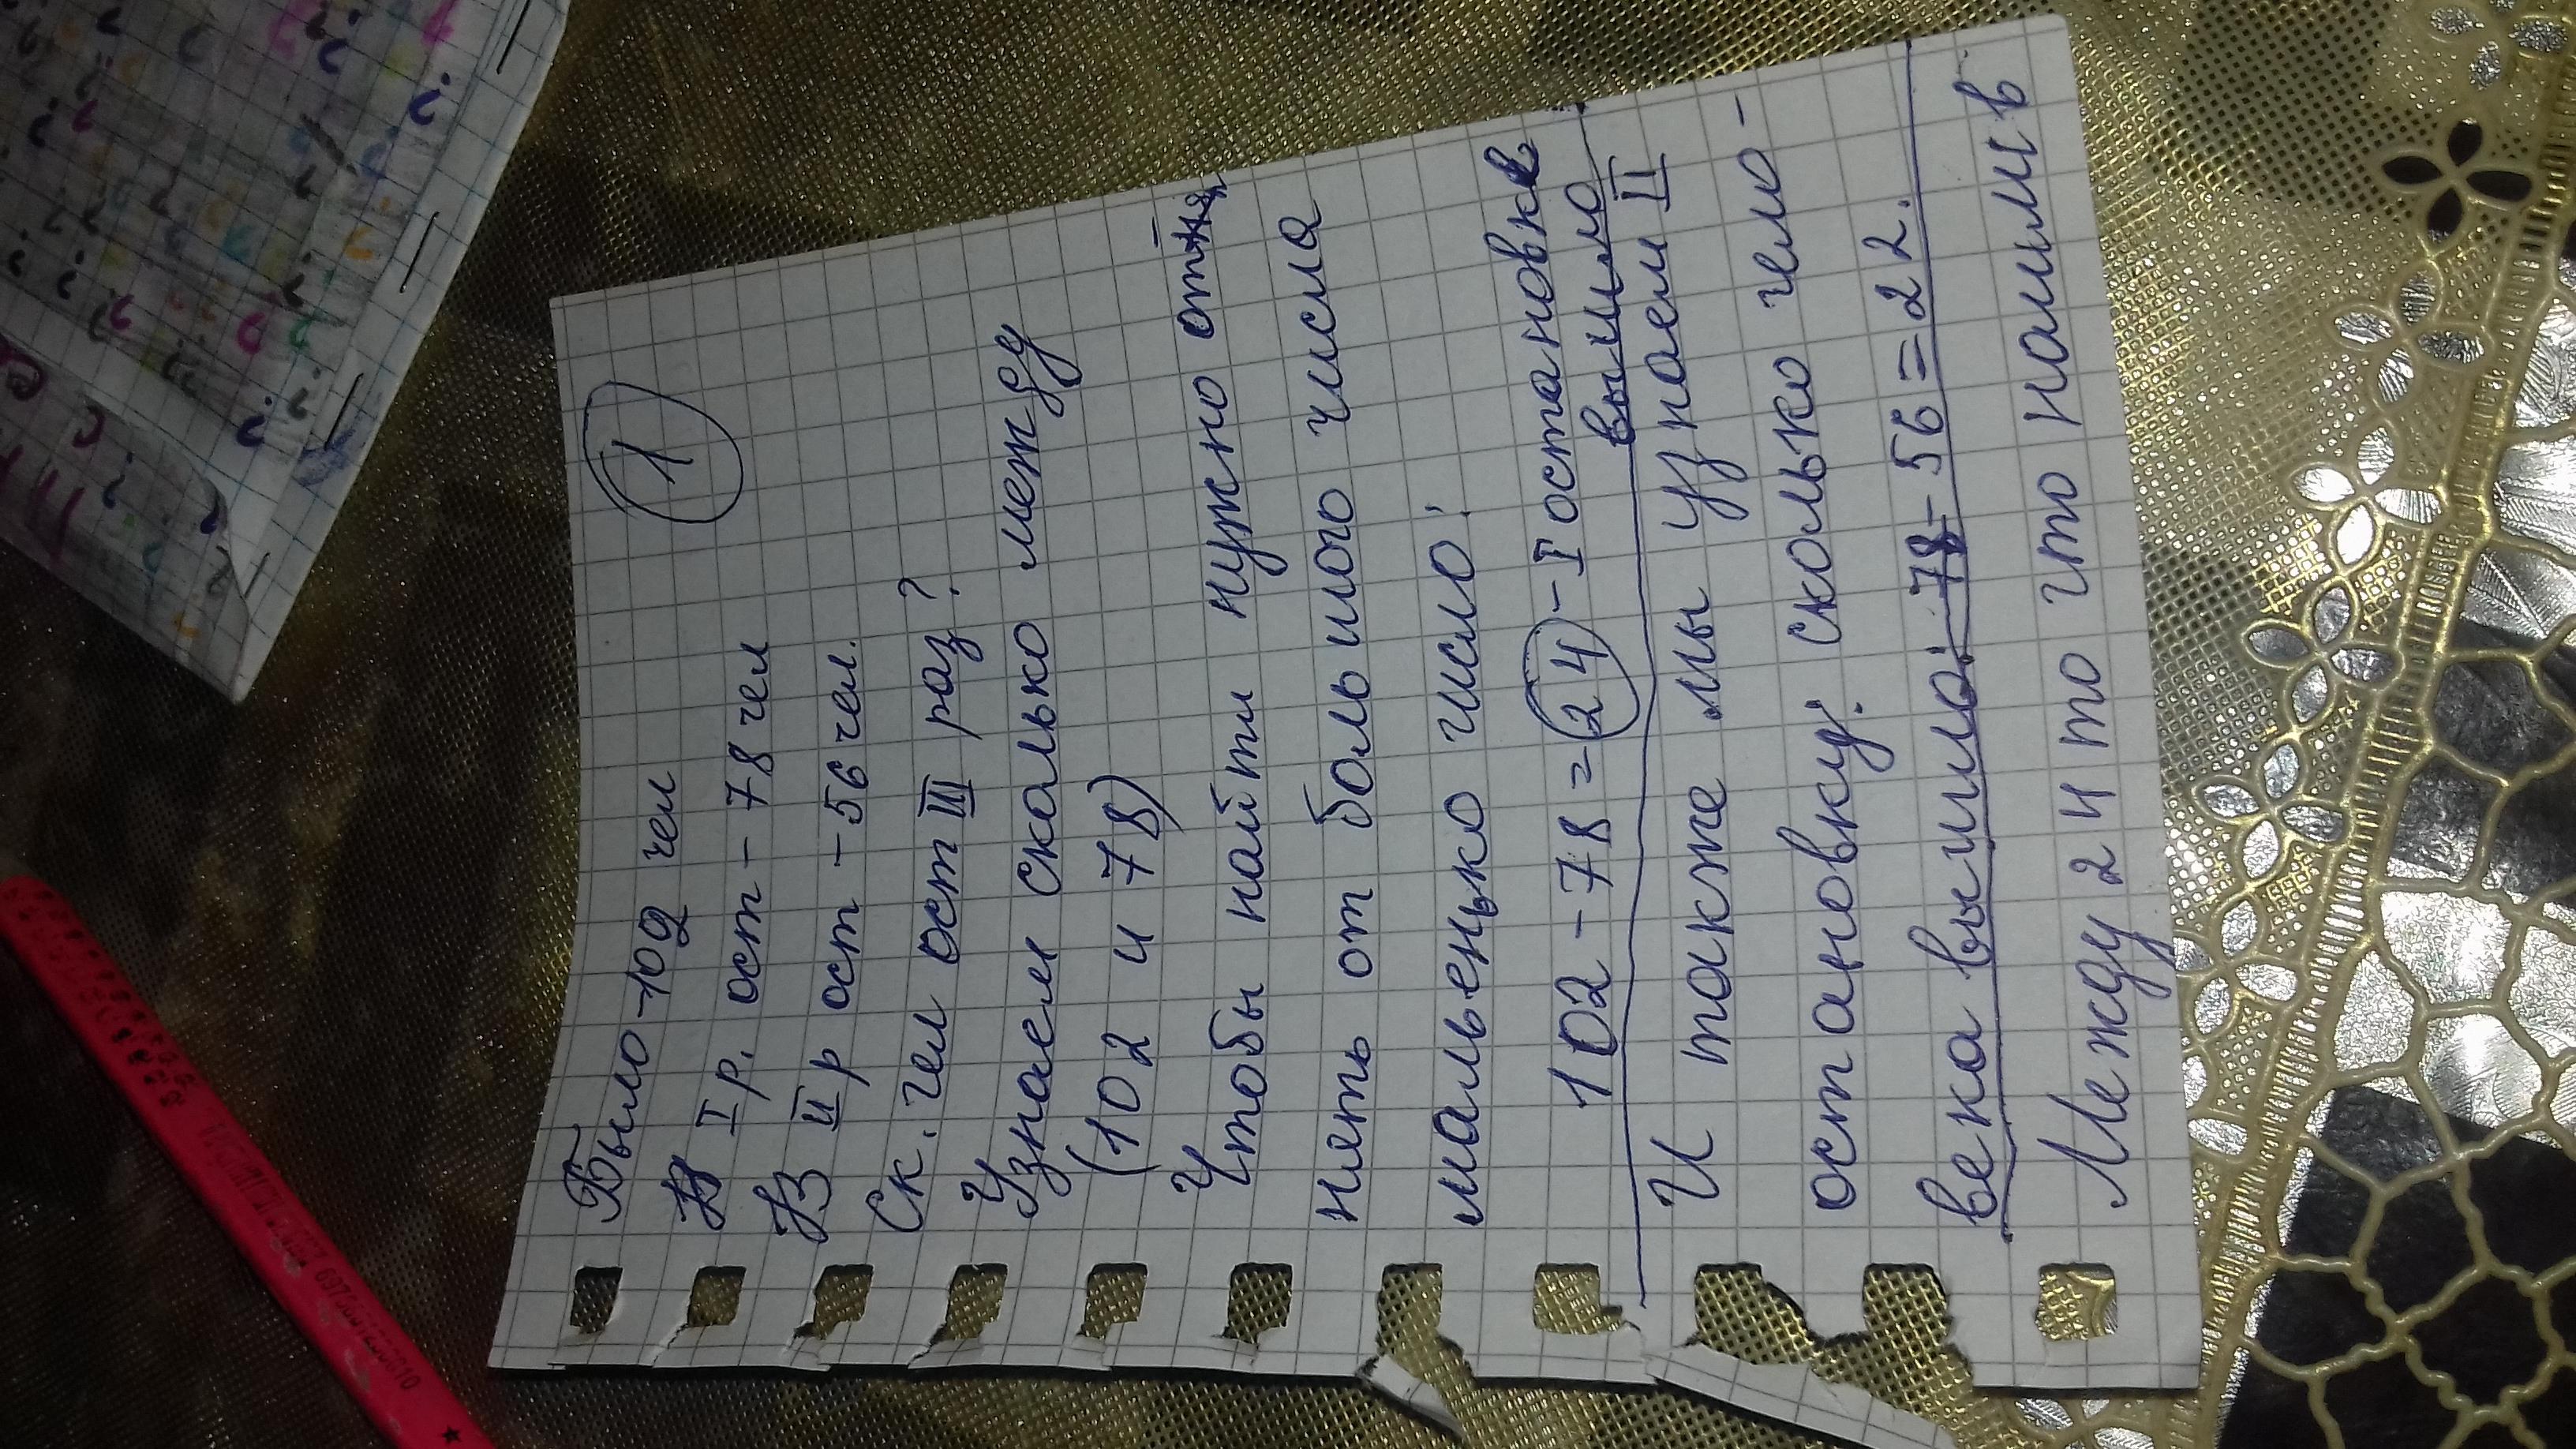 1
Было - 102 чел
В I р. ост - 78 чел
В II р ост - 56 чел.
Ск. чел ост III раз?
Узнаем скалько между
(102 и 78)
Чтобы найти нужно от
нять от большого числа
маленько число:
102 - 78 = 24 - I остановке
вышло
И также мы узнаем II
остановку: сколько чело -
века вышло: 78 - 56 = 22.
Между 24 то что нашли в